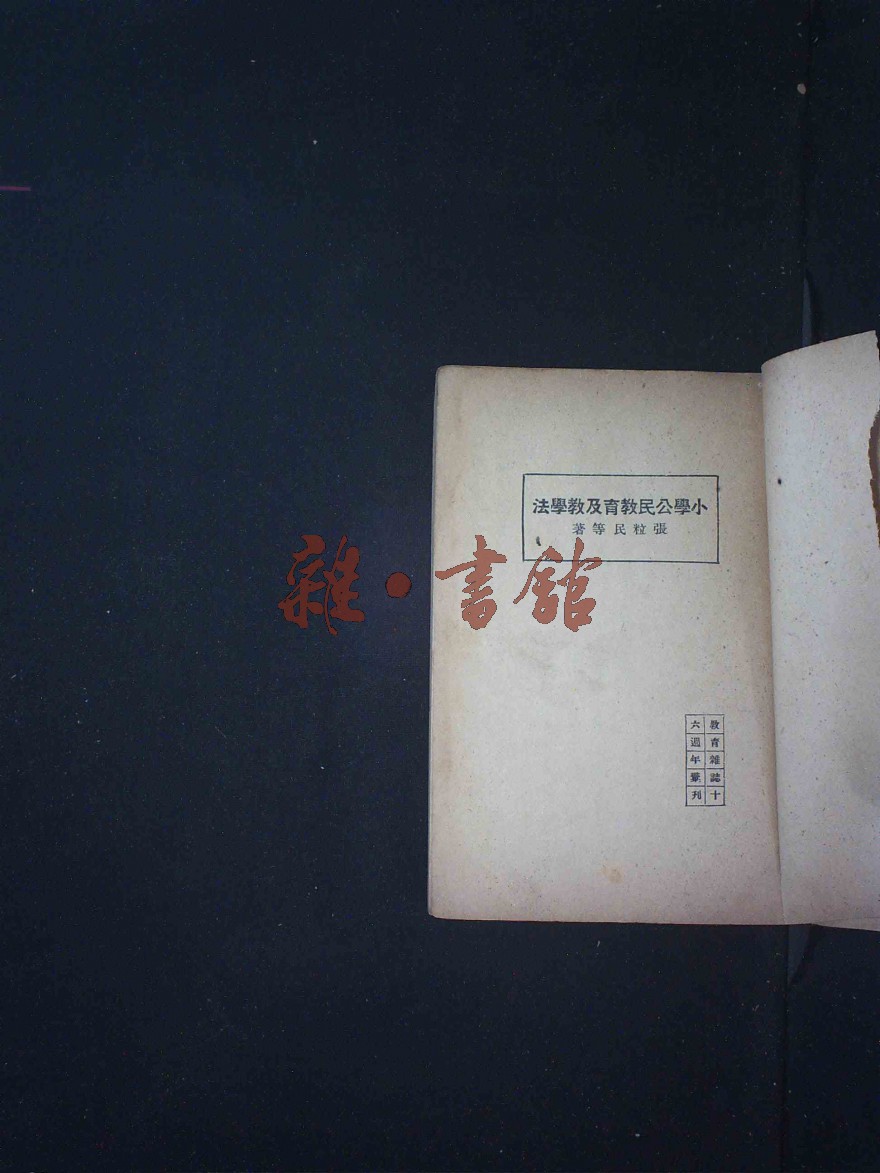 小學公民教育及教學法
張粒民等著
雜·書館
教育雜誌十
六週年彙刊